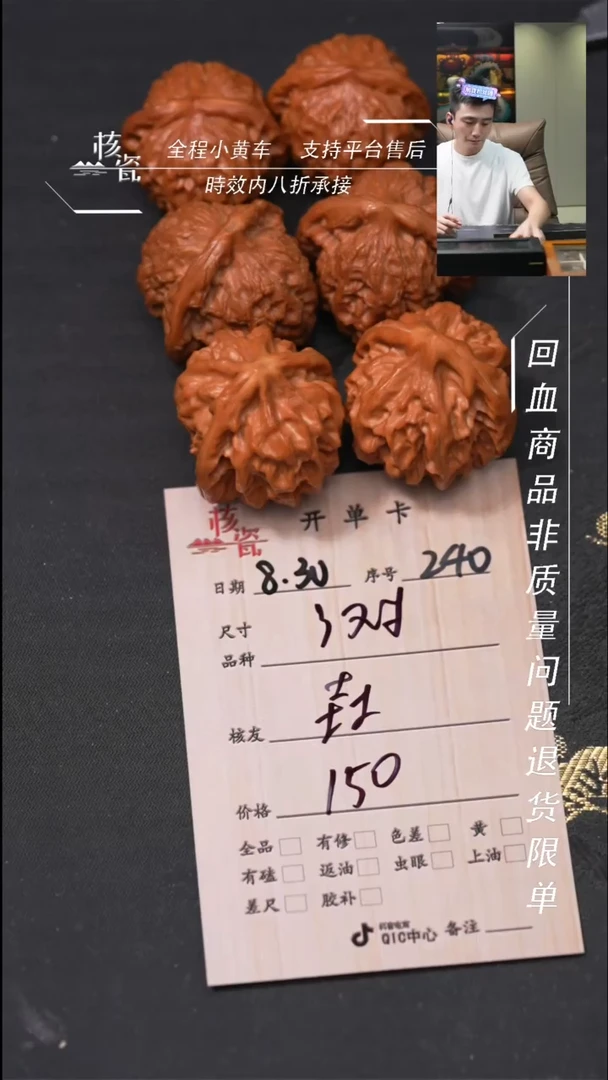 核瓷
全程小黄车 支持平台售后
時效内八折承接
回血商品非质量问题退货限单
核瓷
开单卡
日期 8.30 序号 240
尺寸 3对
品种
核友 封
价格 150
全品 有修 色差 黄
有磕 返油 虫眼 上油
差尺 胶补
抖音电商
QIC中心 备注